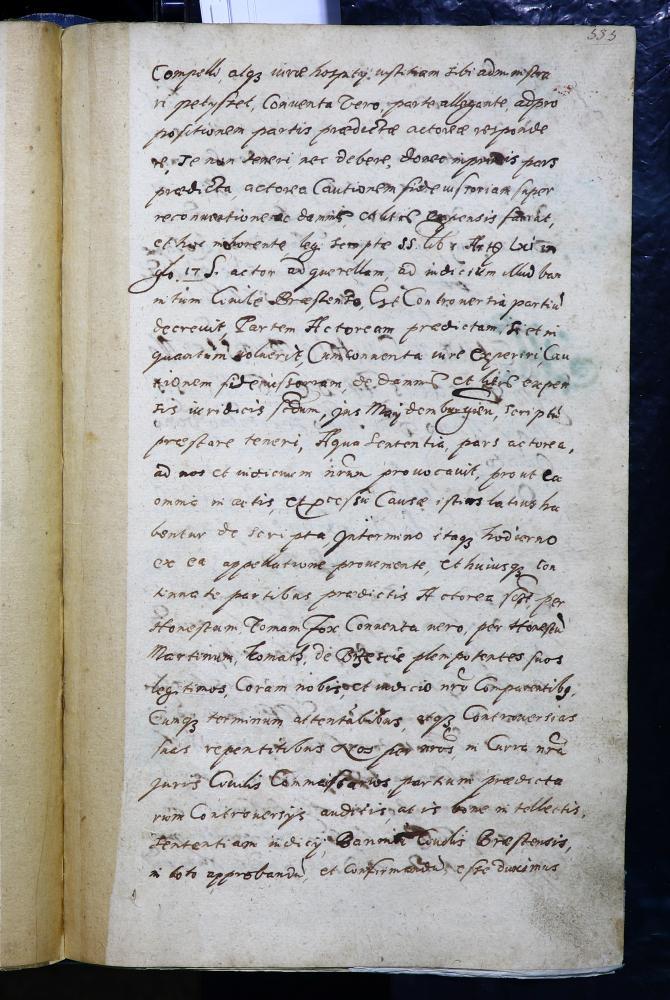 535
Compelli, atqz iure hospity iustitiam sibi administra
ri petysset, Conventa Vero, parte allegante, ad pro
positionem partis prædictæ actoreæ responde
re, se non teneri nec debere, donec inprimis pars
prædicta, actorea Cautionem fideiussoriam super
reconventione ac damnis, et litis expensis faciat,
et hoc inhærente leg. scripte SS. lib 1 Art
glo. 17 S. actor ad querellam, ad iudicium illud ban
nitum Civile Bræstense, Controversia partiũ
decrevit Partem Actoream prædictam, si et in
quantum voluerit, Cum conventa iure experiri, Cau
tionem fideiussoriam, de damnis et litis expen
sis iuridicis sedum, Jus Maydemburgien, scriptũ
præstare teneri, A qua sententia, pars actorea,
ad nos et iudicium nrum provocavit, prout ea
omnia in actis, et pcessu Causæ istius latius ha
bentur descripta In termino itaqz hodierno
ex ea appellatione proveniente, et huiusqz con
tinuato partibus prædictis Actorea sct, per
Honestum, Tomam Fox Conventa uero, per Honestũ
Martinum, Tomash, de Brescie plenipotentes suos
legitimos, Coram nobis, et iudicio nro Comparentibz,
Eunqz terminum attentabibus, atqz Controversias
suas repentitibus Nos per nros, in Curia nrã
Juris Civilis Commissarios partium prædicta
rum Controversys auditis at is bene intellectis,
sententiam iudicy, Banniti Civilis Bræstensis,
in toto approbandũ, et Confirmandũ, esse duximus